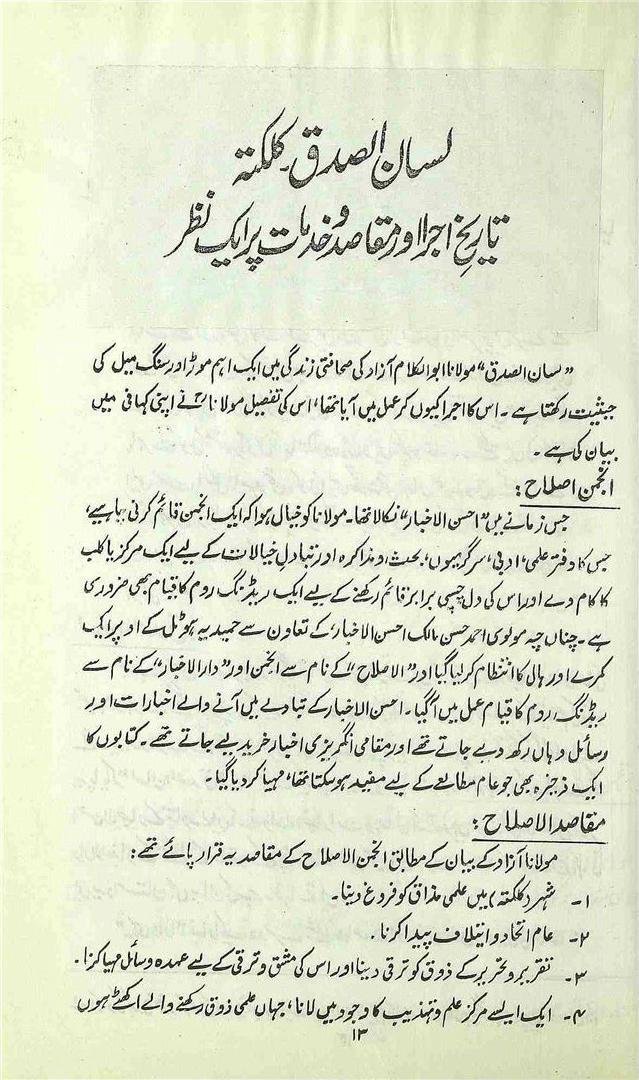 لسان الصدق۔ کلکتہ
تاریخ اجرا اور مقاصد و خدمات پر ایک نظر
”لسان الصدق“ مولانا ابوالکلام آزاد کی صحافتی زندگی میں ایک اہم موڑ اور سنگ میل کی
حیثیت رکھتا ہے۔ اس کا اجرا کیوں کر عمل میں آیا تھا، اس کی تفصیل مولانا نے اپنی کہانی میں
بیان کی ہے۔
انجمن اصلاح:
جس زمانے میں ”احسن الاخبار“ نکالا تھا۔ مولانا کو خیال ہوا کہ ایک انجمن قائم کرنی چاہیے،
جس کا دفتر علمی، ادبی، سرگرمیوں، بحث و مذاکرہ اور تبادلِ خیالات کے لیے ایک مرکز یا کلب
کا کام دے اور اس کی دل چسپی برابر قائم رکھنے کے لیے ایک ریڈنگ روم کا قیام بھی ضروری
ہے۔ چناں چہ مولوی احمد حسن مالک احسن الاخبار کے تعاون سے حمیدیہ ہوٹل کے اوپر ایک
کمرے اور ہال کا انتظام کر لیا گیا اور ”الاصلاح“ کے نام سے انجمن اور ”دار الاخبار“ کے نام سے
ریڈنگ روم کا قیام عمل میں آگیا۔ احسن الاخبار کے تبادلے میں آنے والے اخبارات اور
رسائل وہاں رکھ دیے جاتے تھے اور مقامی انگریزی اخبار خرید لیے جاتے تھے۔ کتابوں کا
ایک ذخیرہ بھی جو عام مطالعے کے لیے مفید ہو سکتا تھا، مہیا کر دیا گیا۔
مقاصد الاصلاح:
مولانا آزاد کے بیان کے مطابق انجمن الاصلاح کے مقاصد یہ قرار پائے تھے:
۱۔ شہر (کلکتہ) میں علمی مذاق کو فروغ دینا۔
۲۔ عام اتحاد و ایتلاف پیدا کرنا۔
۳۔ تقریر و تحریر کے ذوق کو ترقی دینا اور اس کی مشق و ترقی کے لیے عمدہ وسائل مہیا کرنا۔
۴۔ ایک ایسے مرکز علم و تہذیب کا وجود میں لانا، جہاں علمی ذوق رکھنے والے اکھٹے ہوں
۱۳